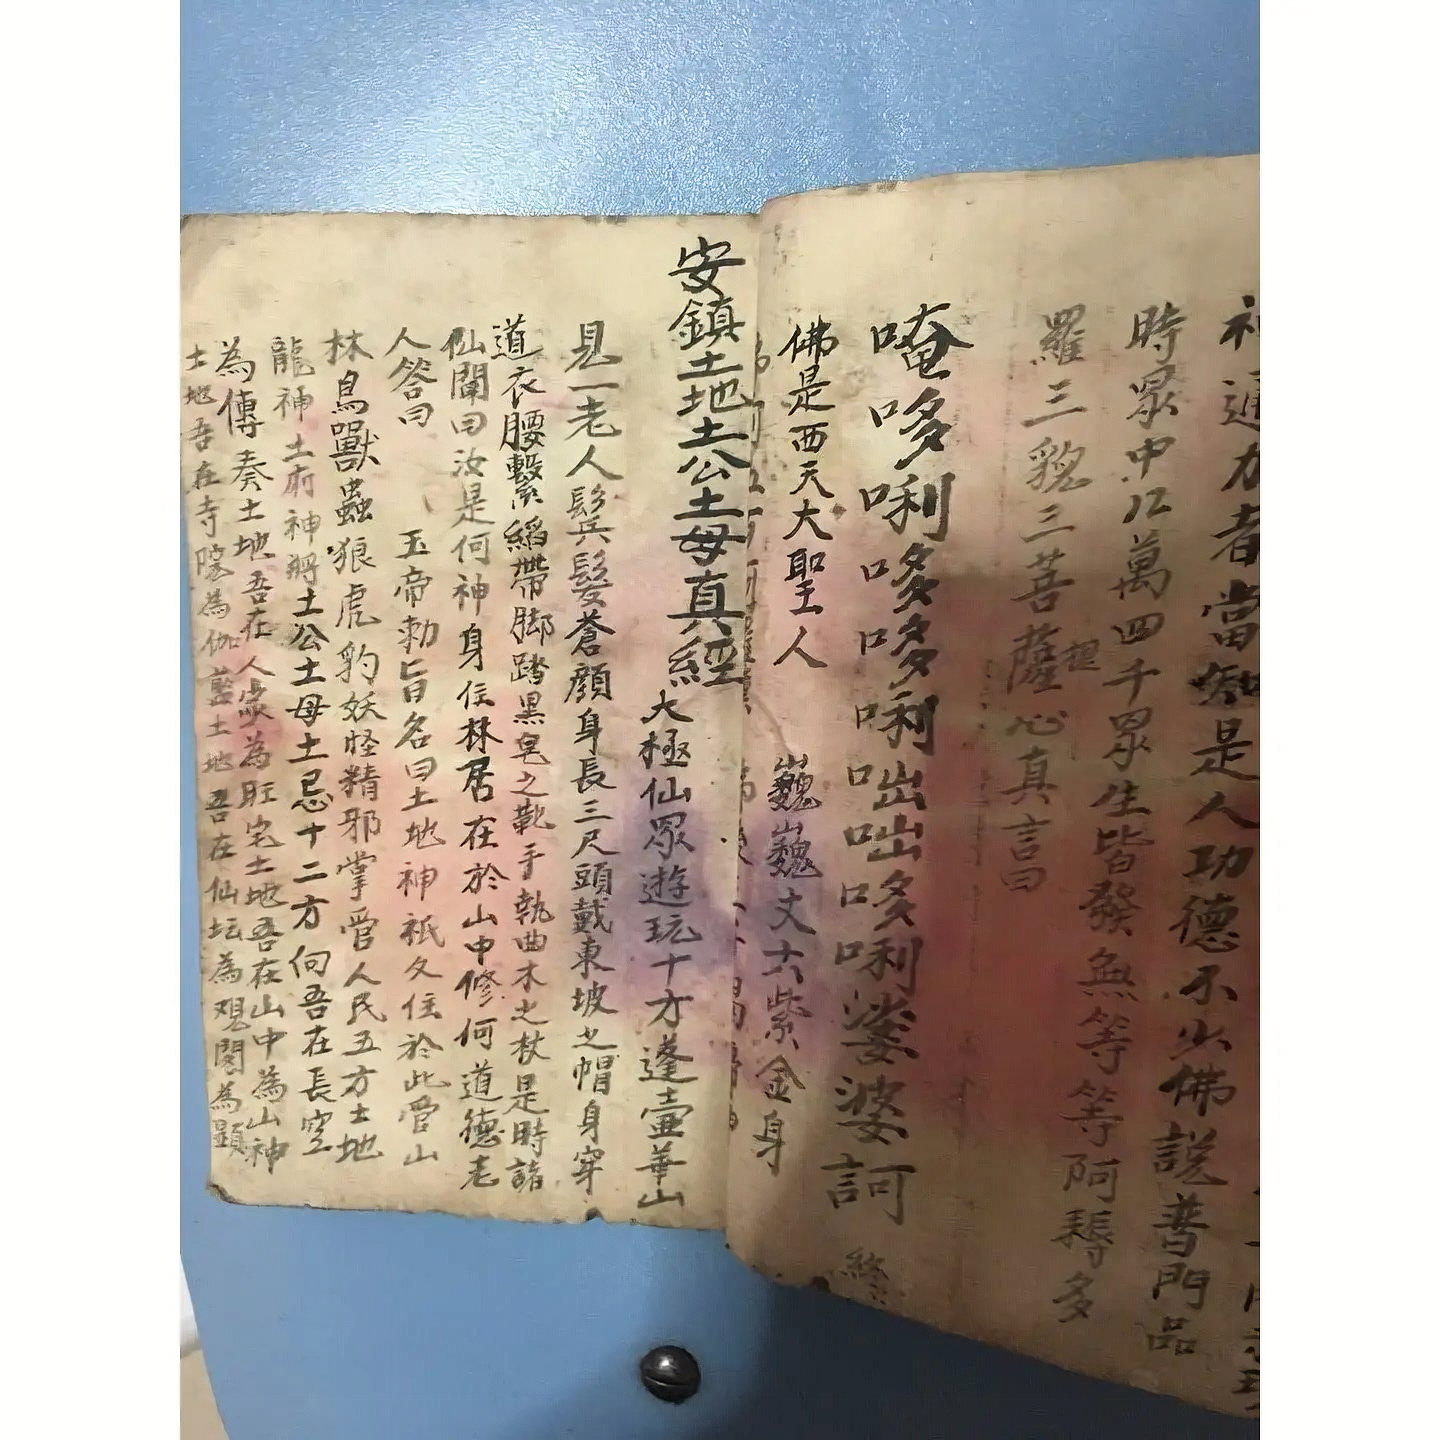 神通力者當知是人功德不少佛說普門品
時眾中八萬四千眾生皆發無等等阿耨多
羅三藐三菩薩心真言曰
提
唵哆唎哆哆唎咄咄哆唎娑婆訶
終
佛是西天大聖人 巍巍丈六紫金身
安鎮土地土公土母真經
大極仙眾遊玩十方蓬壷華山
見一老人鬂髮蒼顔身長三尺頭戴東坡之帽身穿
道衣腰繫縚帶脚踏黑皂之靴手執曲木之杖是時諸
仙闡曰汝是何神身住林居在於山中修何道德老
人答曰 玉帝勅旨名曰土地神祇久住於此管山
林鳥獸蟲狼虎豹妖怪精邪掌管人民五方土地
龍神土府神將土公土母土忌十二方向吾在長空
為傳奏土地吾在人家為旺宅土地吾在山中為山神
土地吾在寺院為伽藍土地吾在仙坛為观閣為顕